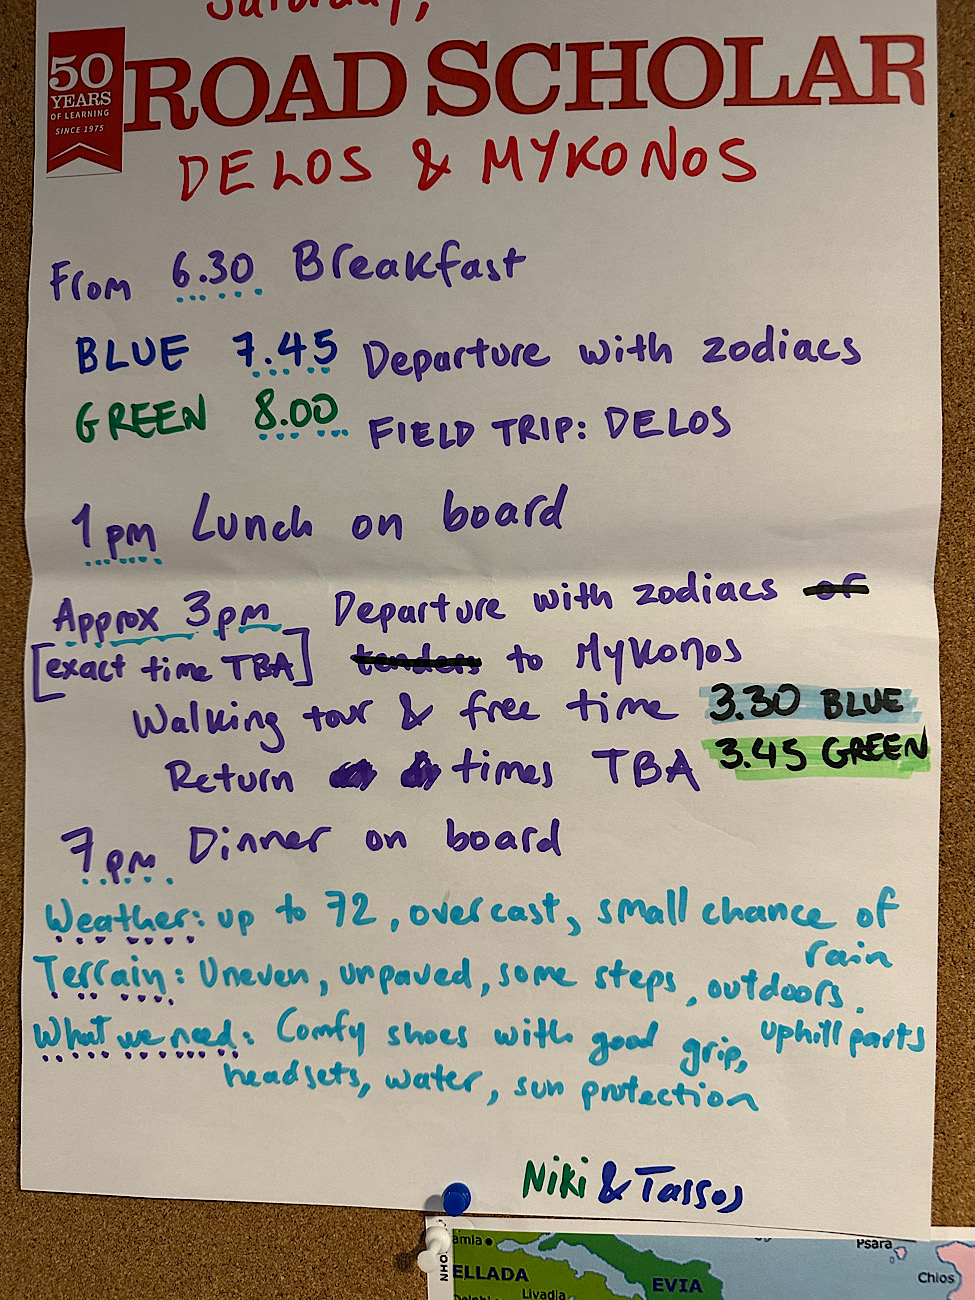 Saturday,
50
YEARS
OF LEARNING
SINCE 1975
ROAD SCHOLAR
DELOS & MYKONOS
From 6.30 Breakfast
BLUE 7.45 Departure with zodiacs
GREEN 8.00 FIELD TRIP: DELOS
1pm Lunch on board
Approx 3pm Departure with zodiacs or
[exact time TBA] tenders to Mykonos
Walking tour & free time 3.30 BLUE
Return times TBA 3.45 GREEN
7pm Dinner on board
Weather: up to 72, overcast, small chance of
rain
Terrain: Uneven, unpaved, some steps, outdoors.
uphill parts
What we need: Comfy shoes with good grip,
headsets, water, sun protection
Niki & Tassos
amia
ELLADA
EVIA
Livadia
Psara
Chios